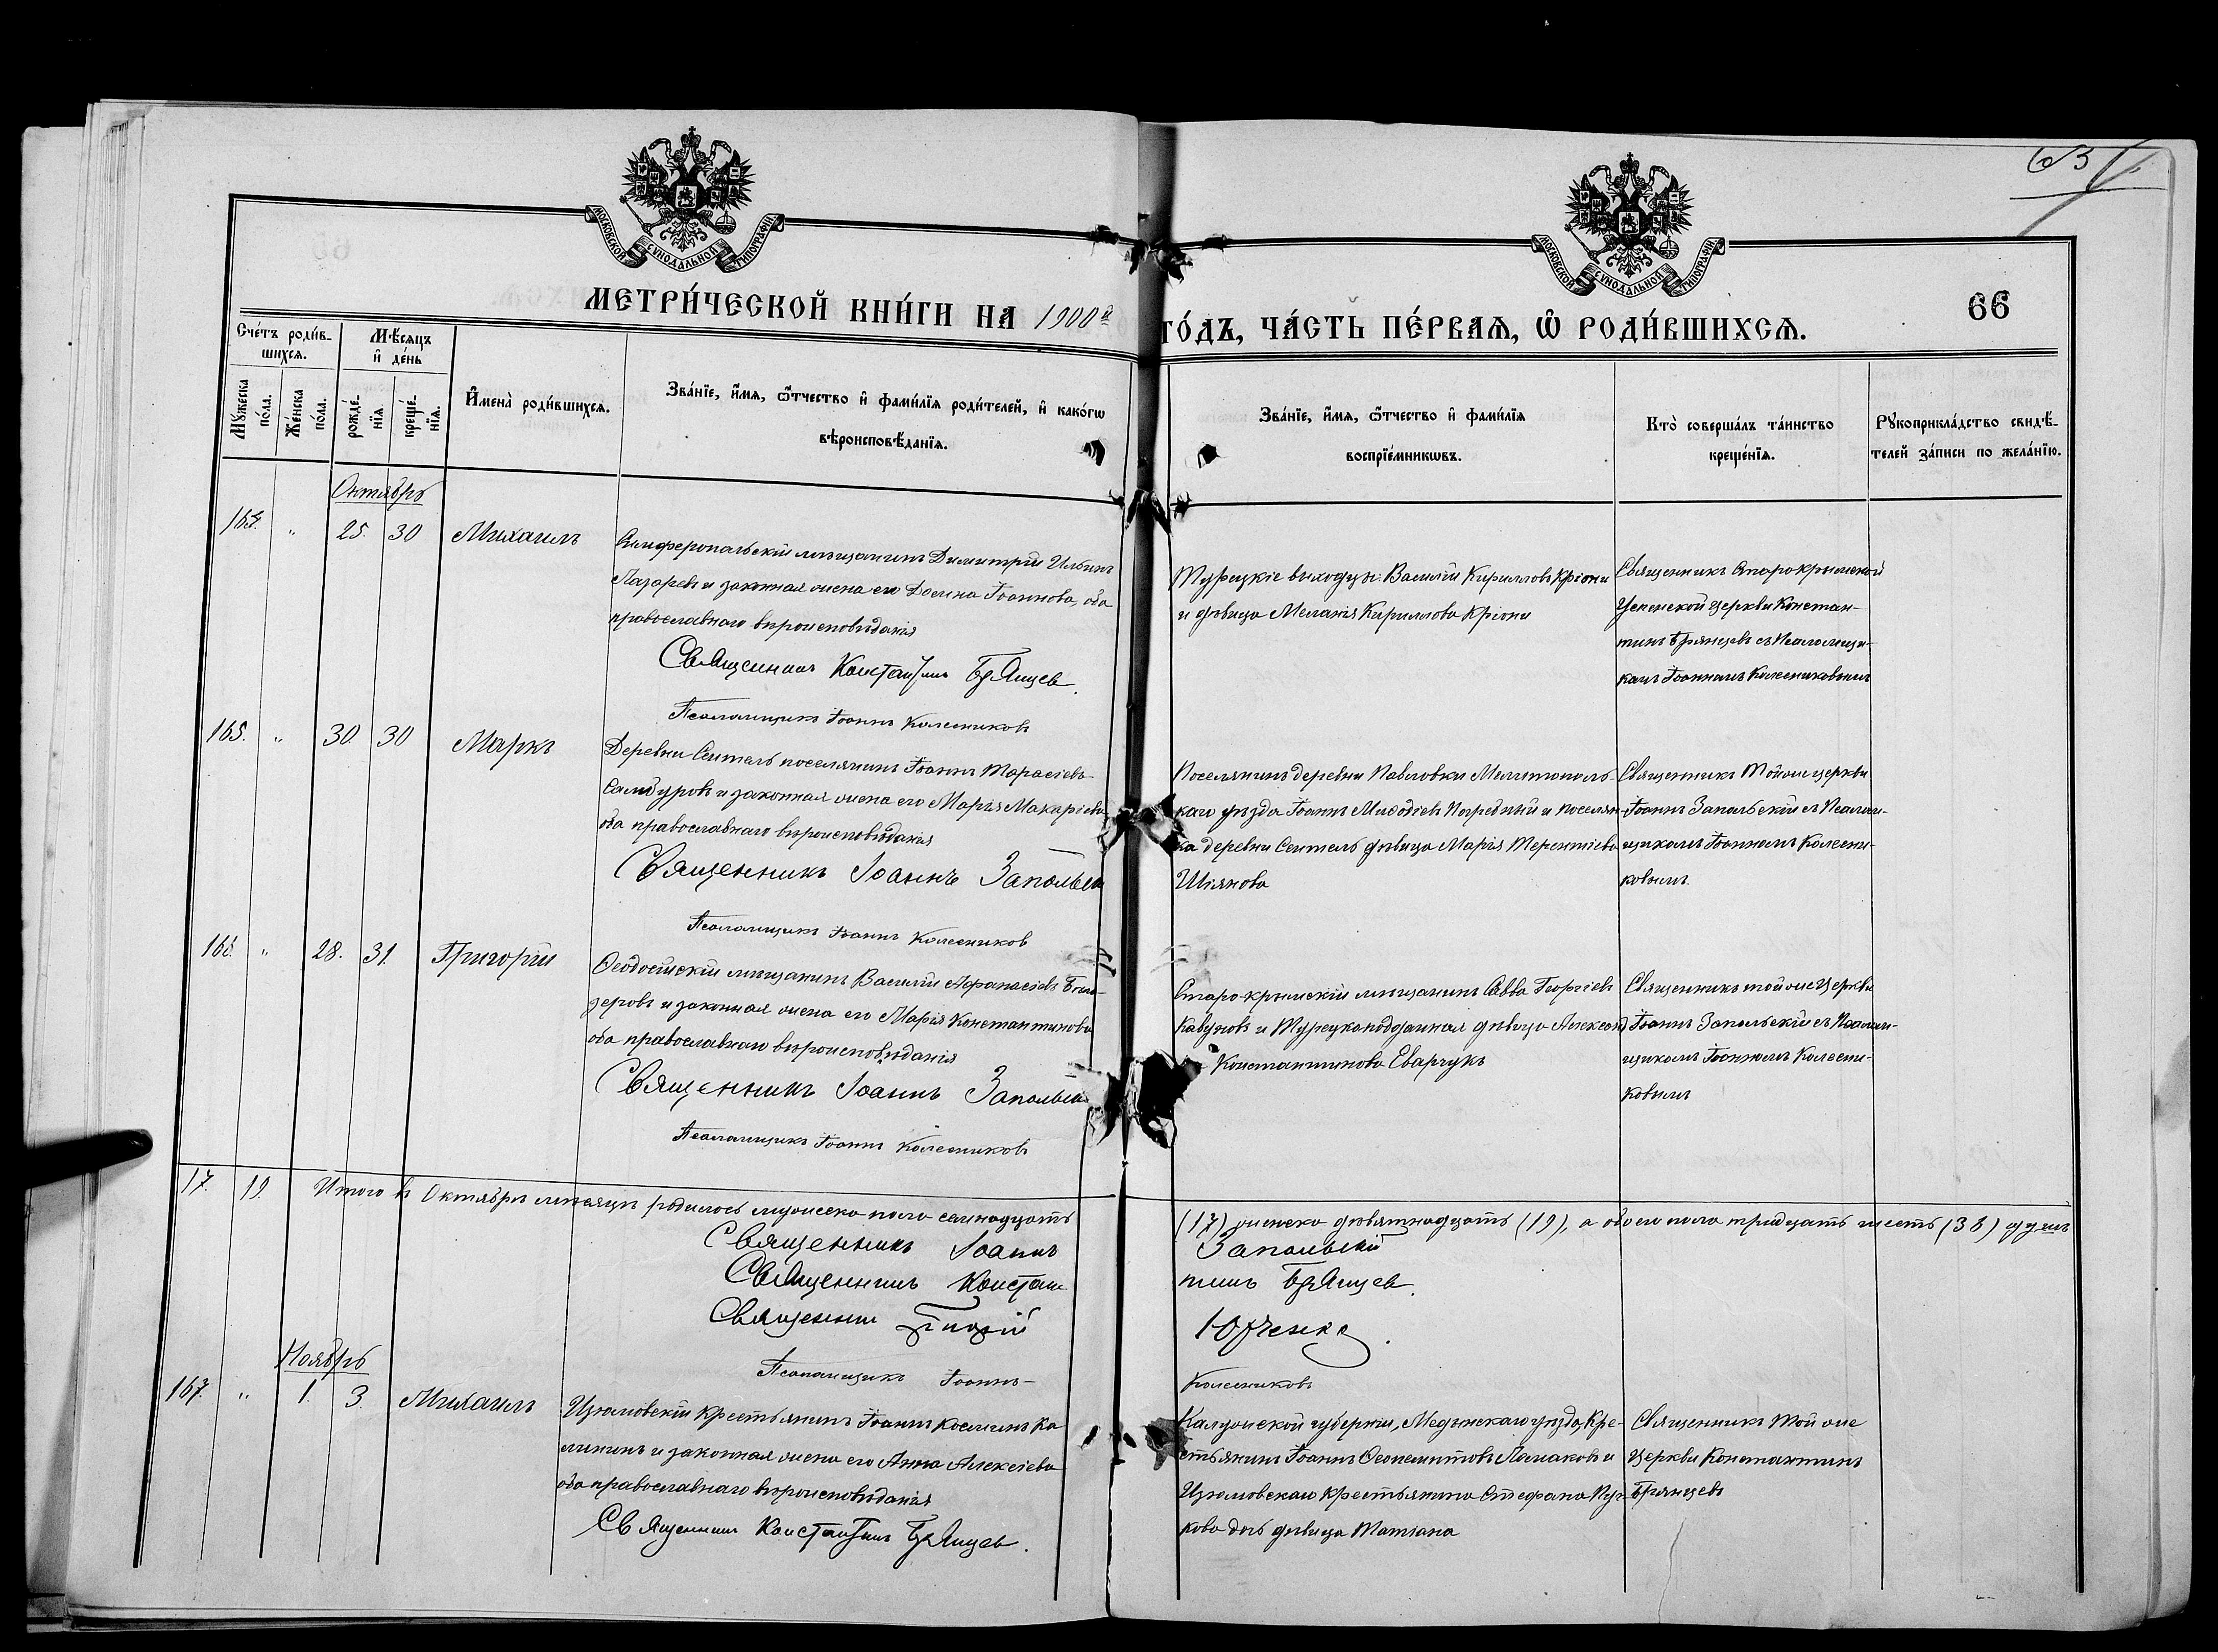 63
МОСКОВСКОЙ СѴНОДАЛЬНОЙ ТИПОГРАФІИ
МОСКОВСКОЙ СѴНОДАЛЬНОЙ ТИПОГРАФІИ
66
МЕТРИ́ЧЕСКОЙ КНИ́ГИ НА 1900й
ГО́ДЪ, ЧА́СТЬ ПЕ́РВАѦ, Ѡ҆ РОДИ́ВШИХСѦ.
Сче́тъ роди́в-
шихсѧ.
Мѣ́сѧцъ
и҆ де́нь
Мꙋ́жеска
по́ла.
Же́нска
по́ла.
рожде́-
нїѧ.
креще́-
нїѧ.
И҆мена̀ роди́вшихсѧ.
Зва́нїе, и҆́мѧ, ѻ҆́тчество и҆ фами́лїѧ роди́телей, и҆ како́гѡ
вѣроисповѣ́данїѧ.
Зва́нїе, и҆́мѧ, ѻ҆́тчество и҆ фами́лїѧ
воспрїе́мникѡвъ.
Кто̀ соверша́лъ та́инство
креще́нїѧ.
Рꙋкоприкла́дство свидѣ́-
телей за́писи по жела́нїю.
Октябрь
164. " 25. 30 Михаилъ
Симферопольскій мѣщанинъ Димитрій Ильинъ
Лазаревъ и законная жена его Домна Іоаннова, оба
православнаго вѣроисповѣданія
Священникъ Константинъ Брянцев.
Псаломщикъ Іоаннъ Колесниковъ
Турецкіе выходцы: Василій Кирилловъ Кріони
и дѣвица Меланія Кириллова Кріони
Священникъ Старокрымской
Успенской церкви Констан-
тинъ Брянцевъ съ Псаломщи-
комъ Іоанномъ Колесниковымъ
165. " 30. 30 Маркъ
Деревни Сеитель поселянинъ Іоаннъ Тарасіевъ
Самбуровъ и законная жена его Марія Макаріева
оба православнаго вѣроисповѣданія
Священникъ Іоаннъ Запольск
Псаломщикъ Іоаннъ Колесниковъ
Поселянинъ деревни Павловки Мелитополь-
каго уѣзда Іоаннъ Меѳодіевъ Поредній и поселян-
ка деревни Сеитель дѣвица Марія Терентіева
Шіянова
Священникъ той же церкви
Іоаннъ Запольскій съ Псалом-
щикомъ Іоанномъ Колесни-
ковымъ.
166. " 28. 31. Григорій
Ѳеодосійскій мѣщанинъ Василій Аѳанасіевъ Бѣло-
зеровъ и законная жена его Марія Константинова
оба православнаго вѣроисповѣданія
Священникъ Іоаннъ Запольск
Псаломщикъ Іоаннъ Колесниковъ
Старо-крымскій мѣщанинъ Савва Георгіевъ
Кавуновъ и Турецкоподданная дѣвица Александ
Константинова Еварчукъ
Священникъ той же Церкви
Іоаннъ Запольскій съ Псалом-
щикомъ Іоанномъ Колесни-
ковымъ
17. 19. Итого въ Октябрѣ мѣсяцѣ родилось мужеска пола семнадцать
(17) женска девятнадцать (19), а обоего пола тридцать шесть (36) душъ
Священникъ Іоаннъ Запольскій
Священникъ Константинъ Брянцев.
Священник Юрченко.
Псаломщикъ Іоаннъ Колесниковъ
Ноябрь
167. " 1. 3. Михаилъ
Изюмовскій крестьянинъ Іоаннъ Косминъ Ка
лининъ и законная жена его Анна Алексіева
оба православнаго вѣроисповѣданія
Священникъ Константинъ Брянцев.
Калужской губерніи, Медынскаго уѣзда, Кре-
стьянинъ Іоаннъ Ѳеопемптовъ Ломаковъ и
Изюмовскаго крестьянина Стефана Пуч-
кова дочь дѣвица Татіана
Священникъ той же
Церкви Константинъ
Брянцевъ